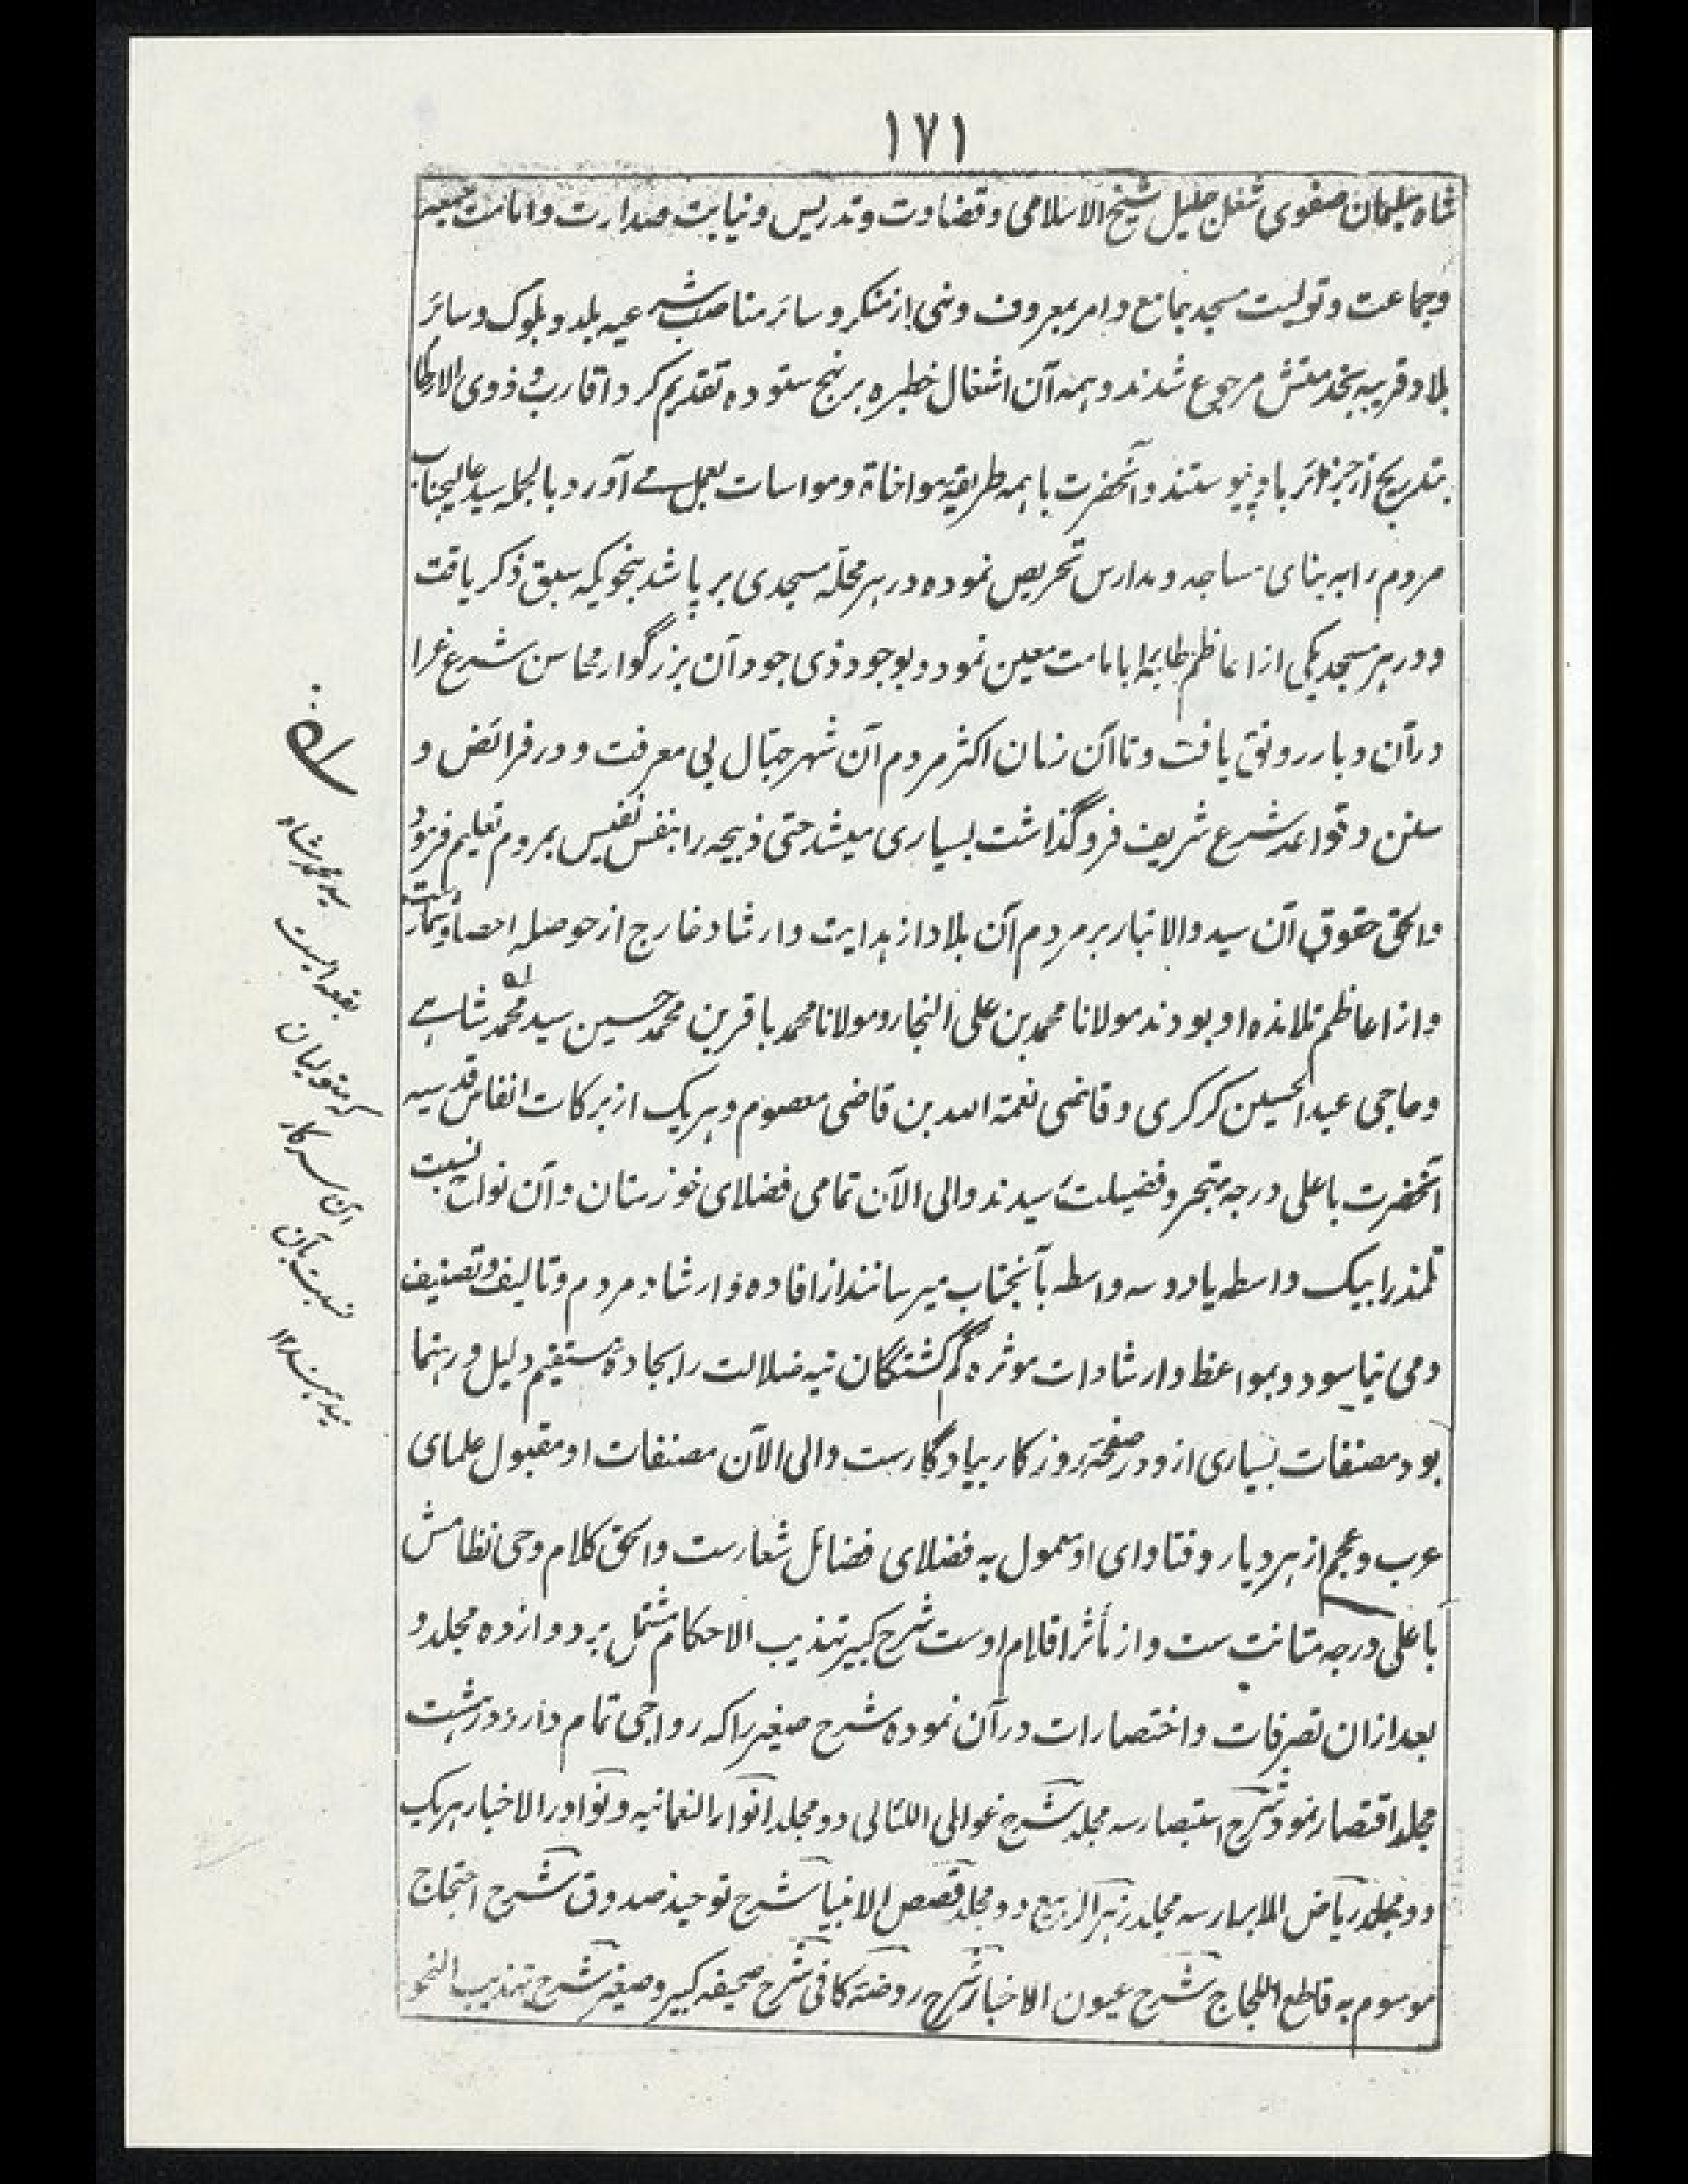 ۱۷۱
شاه سلیمان صفوی شغل جلیل شیخ الاسلامی و قضاوت و تدریس و نیابت صدارت و امامت جمعه
و جماعت و تولیت مسجد جامع و امر بمعروف و نهی از منکر و سائر مناصب شرعیه بلد و بلوک و سائر
بلاد قریبه بخدمتش مرجوع شدند و همه آن اشغال خطیره بر نهج ستوده تقدیم کرد و اقارب و ذوی الارحام
بتدریج از جزائر باو پیوستند و آنحضرت با همه طریقه مواخاة و مواسات بعمل مے آورد و بالجمله سید عالیجناب
مردم را به بنای مساجد و مدارس تحریص نموده در هر محلّه مسجدی بر پا شد بنحویکه سبق ذکر یافت
و در هر مسجد یکی از اعاظم طلبه را بامامت معین نمود و بوجود ذی جود آن بزرگوار محاسن شرع غرا
در آن دیار رونق یافت و تا آن زمان اکثر مردم آن شهر جهّال بی معرفت و در فرائض و
سنن و قواعد شرع شریف فروگذاشت بسیاری میشد حتی ذبیحه را بنفس نفیس بمردم تعلیم فرمود
والحق حقوق آن سید والاتبار بر مردم آن بلاد از هدایت و ارشاد خارج از حوصله احصا و شمارست
و از اعاظم تلامذه او بودند مولانا محمد بن علی النجار و مولانا محمد باقر بن محمد حسین سید محمد شاهے
و حاجی عبد الحسین کرکری و قاضی نعمة الله بن قاضی معصوم و هر یک از برکات انفاس قدسیه
آنحضرت باعلی درجه تبحر و فضیلت رسیدند والی الآن تمامی فضلای خوزستان و آن نواح نسبت
تلمذ را بیک واسطه یا دو سه واسطه بآنجناب میرسانند از افاده و ارشاد مردم و تالیف و تصنیف
دمی نیاسود و بمواعظ و ارشادات موثره گم گشتگان تیه ضلالت را بجادۀ مستقیم دلیل و رهنما
بود مصنفات بسیاری ازو در صفحۀ روزکار بیادگارست والی الآن مصنفات او مقبول علمای
عرب و عجم از هر دیار و فتاوای او معمول به فضلای فضائل شعارست والحق کلام وحی نظامش
باعلی درجه متانت ست و از مأثر اقلام اوست شرح کبیر تهذیب الاحکام مشتمل بر دوازده مجلد و
بعد ازان تصرفات و اختصارات در آن نموده شرح صغیر را که رواجی تمام دارد در هشت
مجلد اقتصار نمود شرح استبصار سه مجلد شرح غوالی اللئالی دو مجلد انوار النعمانیه و نوادر الاخبار هر یک
دو مجلد ریاض الابرار سه مجلد زهر الربیع دو مجلد قصص الانبیا شرح توحید صدوق شرح احتجاج
موسوم به قاطع اللجاج شرح عیون الاخبار شرح روضۀ کافی شرح صحیفه کبیر و صغیر شرح تهذیب النحو
سید محمد شاه
بقعه ایست
که متولیان
آن سرکار
نسبت بآن
میدهند ۱۲